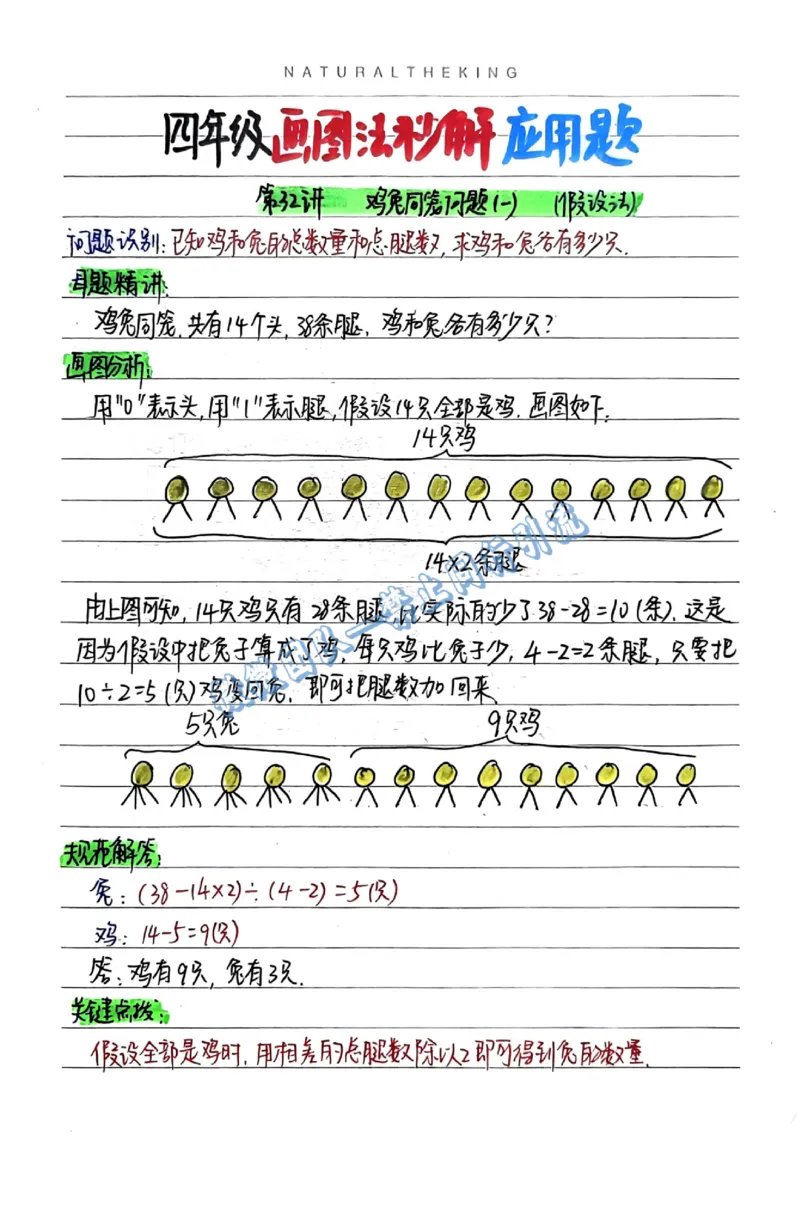 NATURALTHEKING
四年级画图法秒解应用题
第32讲 鸡兔同笼问题(一) (假设法)
问题识别:已知鸡和兔的总数量和总腿数,求鸡和兔各有多少只.
母题精讲:
鸡兔同笼,共有14个头,38条腿,鸡和兔各有多少只?
画图分析:
用"0"表示头,用"1"表示腿,假设14只全部是鸡.画图如下:
14只鸡
14×2条腿
由上图可知,14只鸡只有28条腿,比实际的少了38-28=10(条).这是
因为假设中把兔子算成了鸡,每只鸡比兔子少,4-2=2条腿,只要把
10÷2=5(只)鸡变回兔,即可把腿数加回来
5只兔 9只鸡
规范解答:
兔:(38-14×2)÷(4-2)=5(只)
鸡:14-5=9(只)
答:鸡有9只,兔有3只.
关键点拨:
假设全部是鸡时,用相差的总腿数除以2即可得到兔的数量.
禁止同行引流